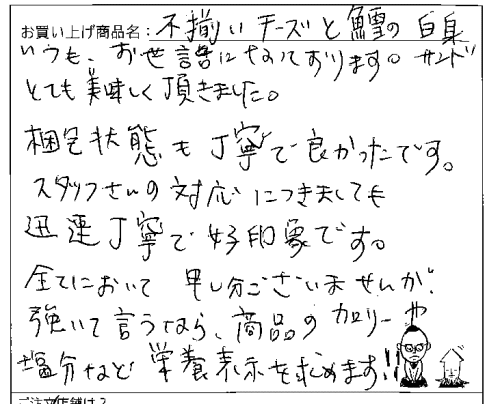 お買い上げ商品名：不揃いチーズと鱈の白身
いつも、お世話になっております。サンド
とても美味しく頂きました。
梱包状態も丁寧で良かったです。
スタッフさんの対応につきましても
迅速丁寧で好印象です。
全てにおいて申し分ございませんが、
強いて言うなら、商品のカロリーや
塩分など栄養表示を求めます!!
ご注文店舗は？